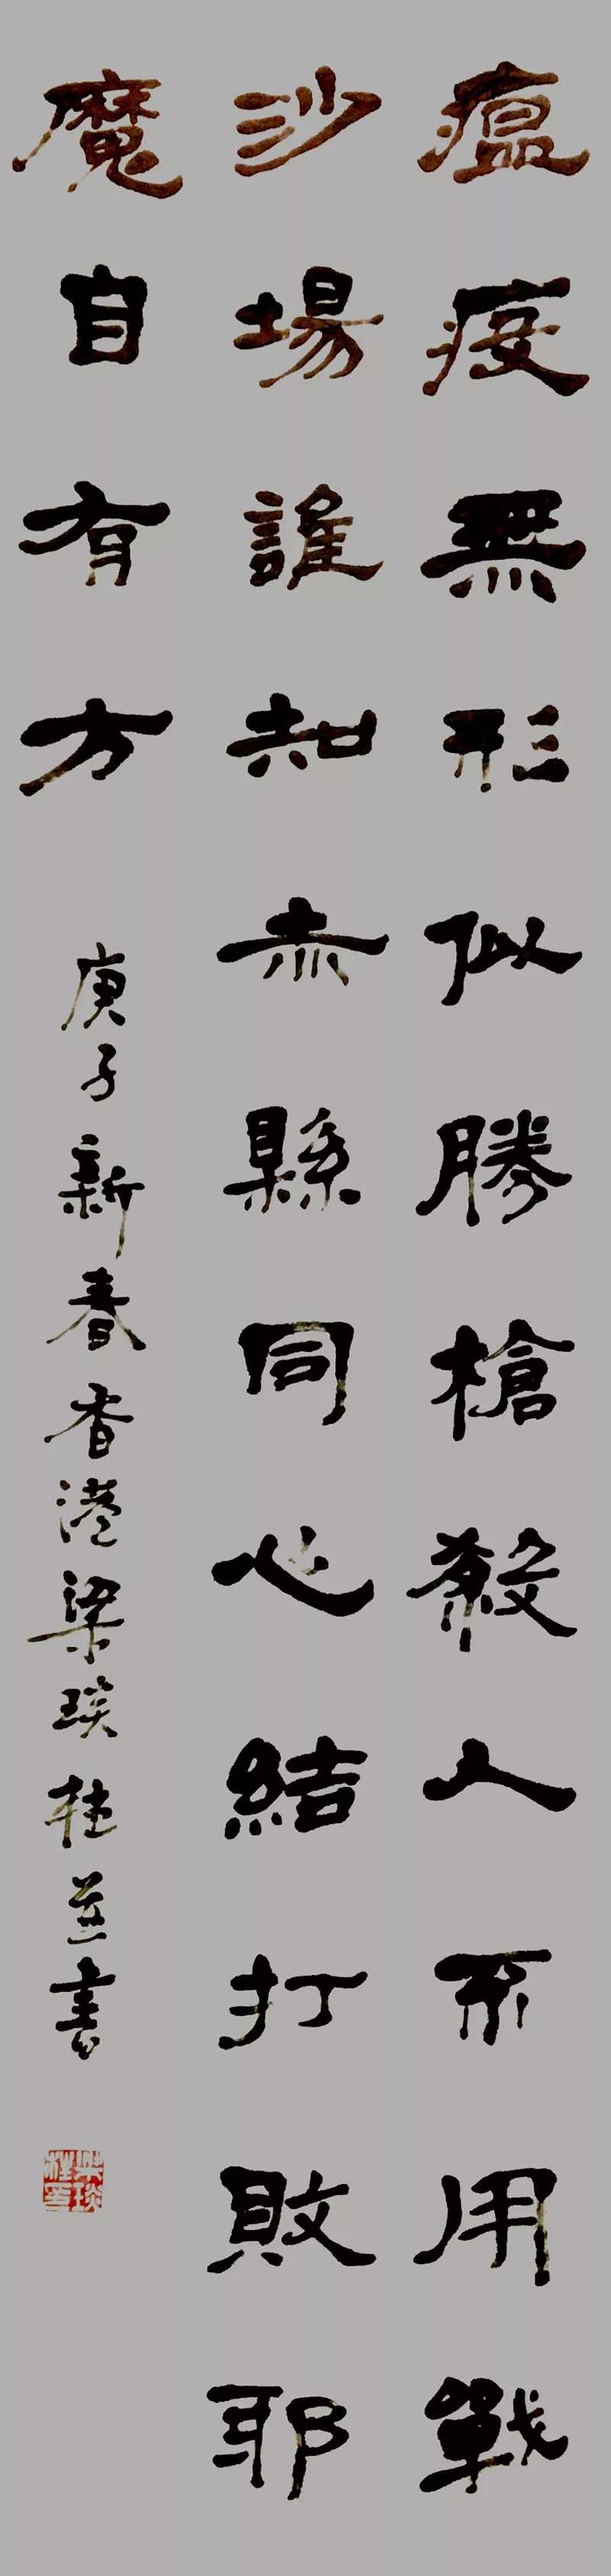 瘟疫無形似勝槍殺人不用戰
沙場誰知赤縣同心結打敗耶
魔自有方
庚子新春香港梁琰桂並書
梁琰桂印